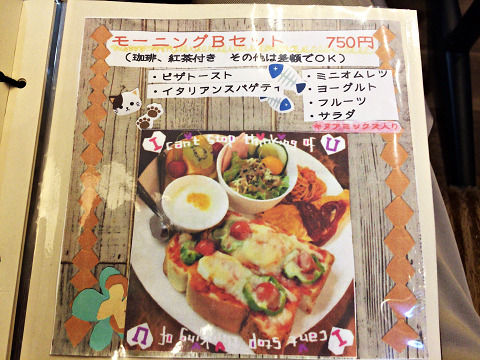 モーニングBセット 750円
(珈琲、紅茶付き その他は差額でOK)
・ピザトースト
・イタリアンスパゲティ
・ミニオムレツ
・ヨーグルト
・フルーツ
・サラダ
キヌアミックス入り
I can't stop thinking of U
I can't stop thinking of U